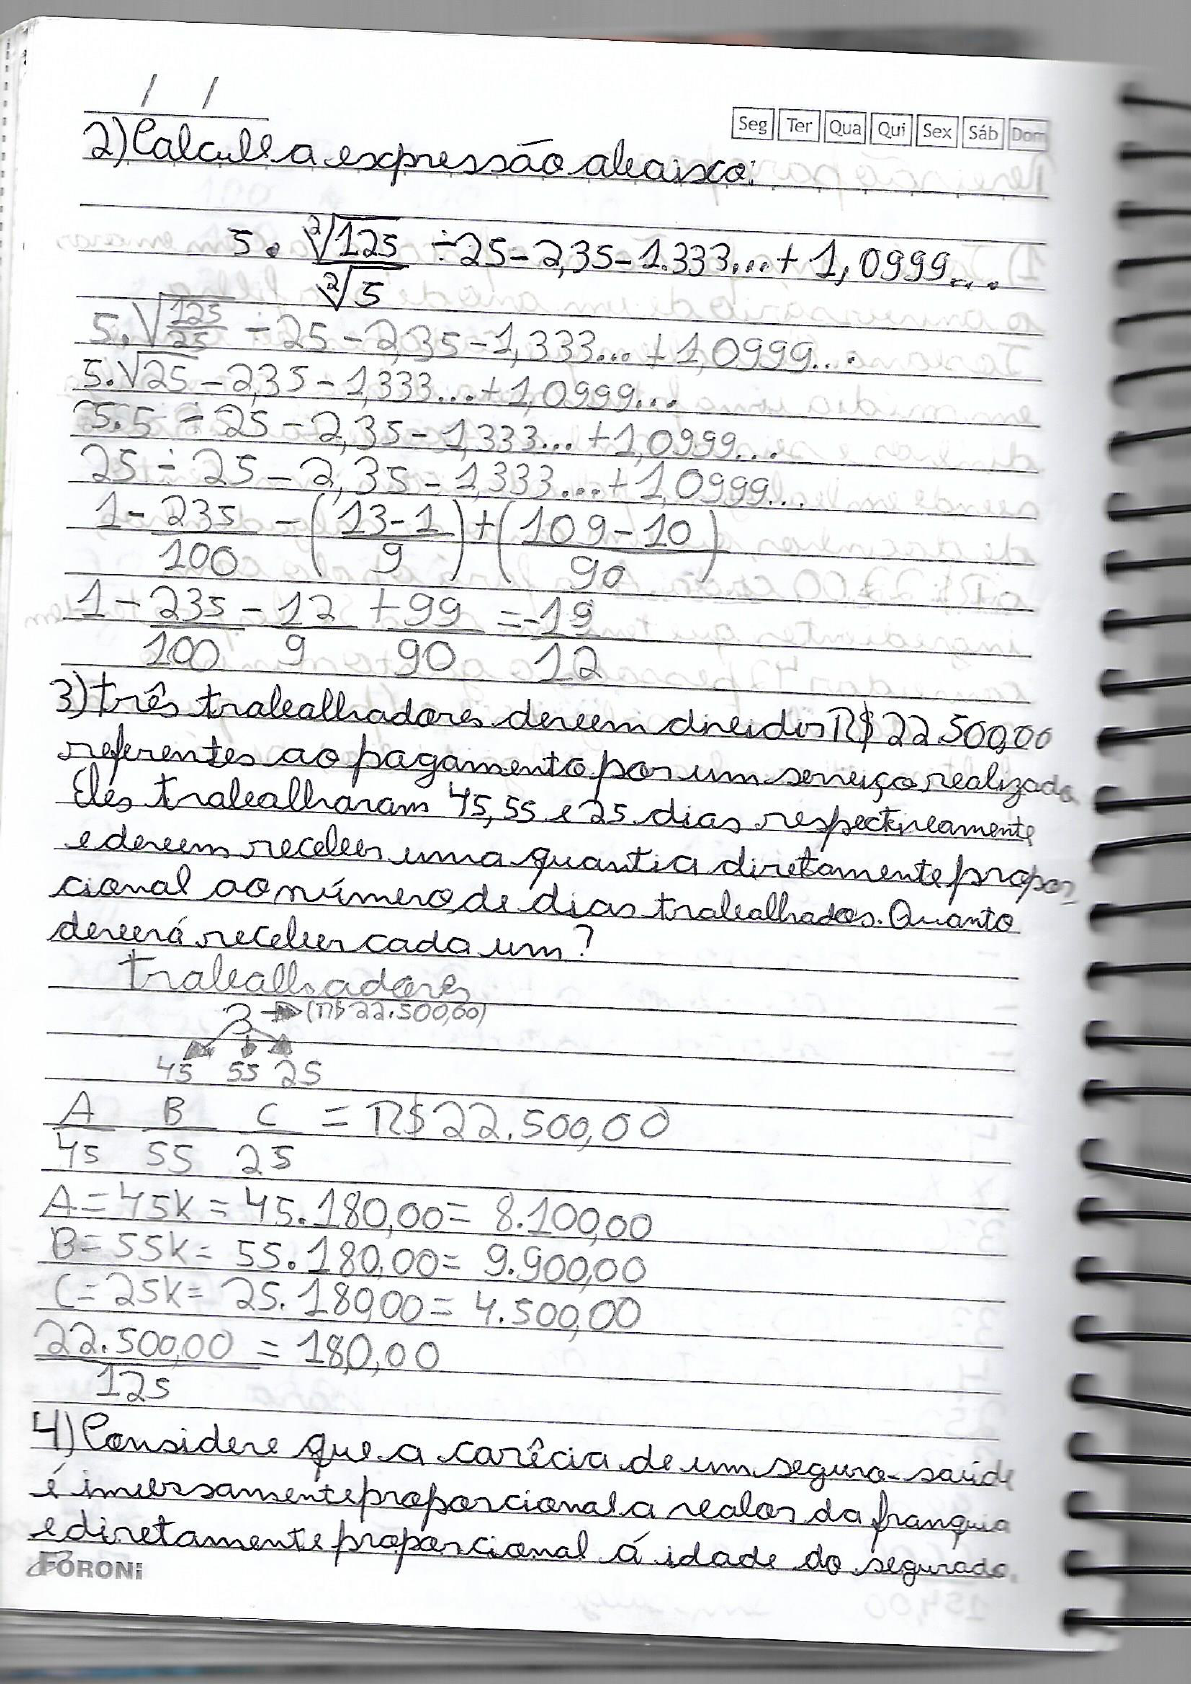 / /
Seg Ter Qua Qui Sex Sáb Dom
2) Calcule a expressão abaixo:
5 . ²√125 / ²√5 ÷ 25 - 2,35 - 1.333... + 1,0999...
5.√125/25 ÷ 25 - 2,35 - 1,333... + 1,0999...
5.√25 - 2,35 - 1,333... + 1,0999...
5.5 ÷ 25 - 2,35 - 1,333... + 1,0999...
25 ÷ 25 - 2,35 - 1,333... + 1,0999...
1 - 235/100 - (13-1/9) + (109-10/90)
1 - 235/100 - 12/9 + 99/90 = -19/12
3) três trabalhadores devem dividir R$ 22.500,00
referentes ao pagamento por um serviço realizado
Eles trabalharam 45, 55 e 25 dias respectivamente
e devem receber uma quantia diretamente propor_
cional ao número de dias trabalhados. Quanto
deverá receber cada um?
trabalhadores
3 → (R$ 22.500,00)
45 55 25
A/45 B/55 C/25 = R$ 22.500,00
A = 45K = 45.180,00 = 8.100,00
B = 55K = 55.180,00 = 9.900,00
C = 25K = 25.180,00 = 4.500,00
22.500,00/125 = 180,00
4) Considere que a carêcia de um seguro-saúde
é inversamente proporcional a valor da franquia
e diretamente proporcional á idade do segurado.
FORONI